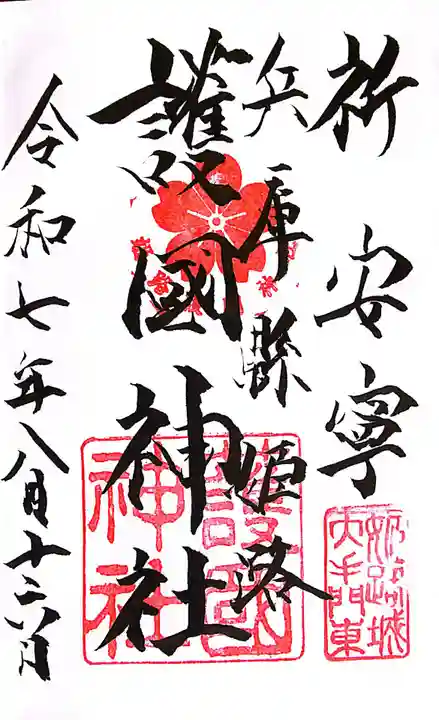 祈 安寧
兵庫縣姫路
護國神社
令和七年八月十六日
姫路城
大手門東
護國
神社